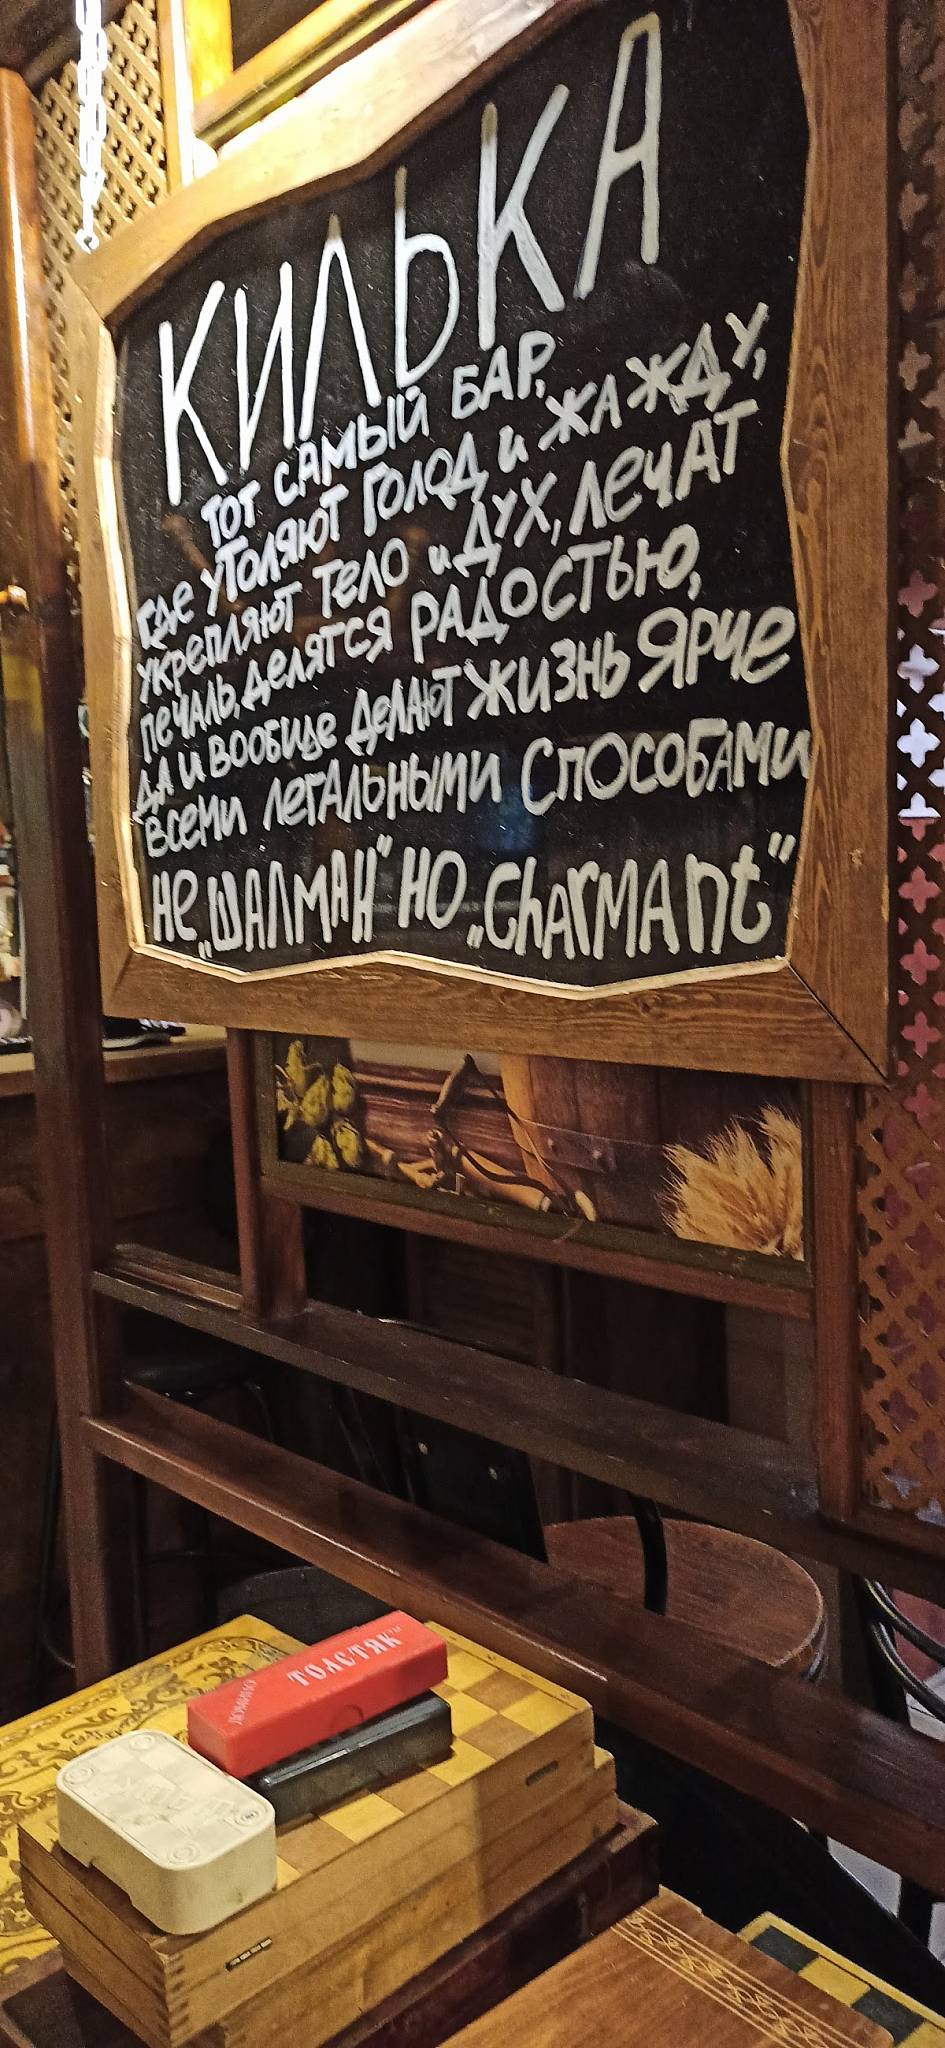 КИЛЬКА
ТОТ САМЫЙ БАР,
где УТОЛЯЮТ ГОЛОД и ЖАЖДУ,
УКРЕПЛЯЮТ ТЕЛО и ДУХ, ЛЕЧАТ
ПЕЧАЛЬ, ДЕЛЯТСЯ РАДОСТЬЮ,
ДА И ВООБЩЕ ДЕЛАЮТ ЖИЗНЬ ЯРЧЕ
ВСЕМИ ЛЕГАЛЬНЫМИ СПОСОБАМИ
НЕ „ШАЛМАН” НО „CharMAnt”
ДОМИНО
ТОЛСТЯК™